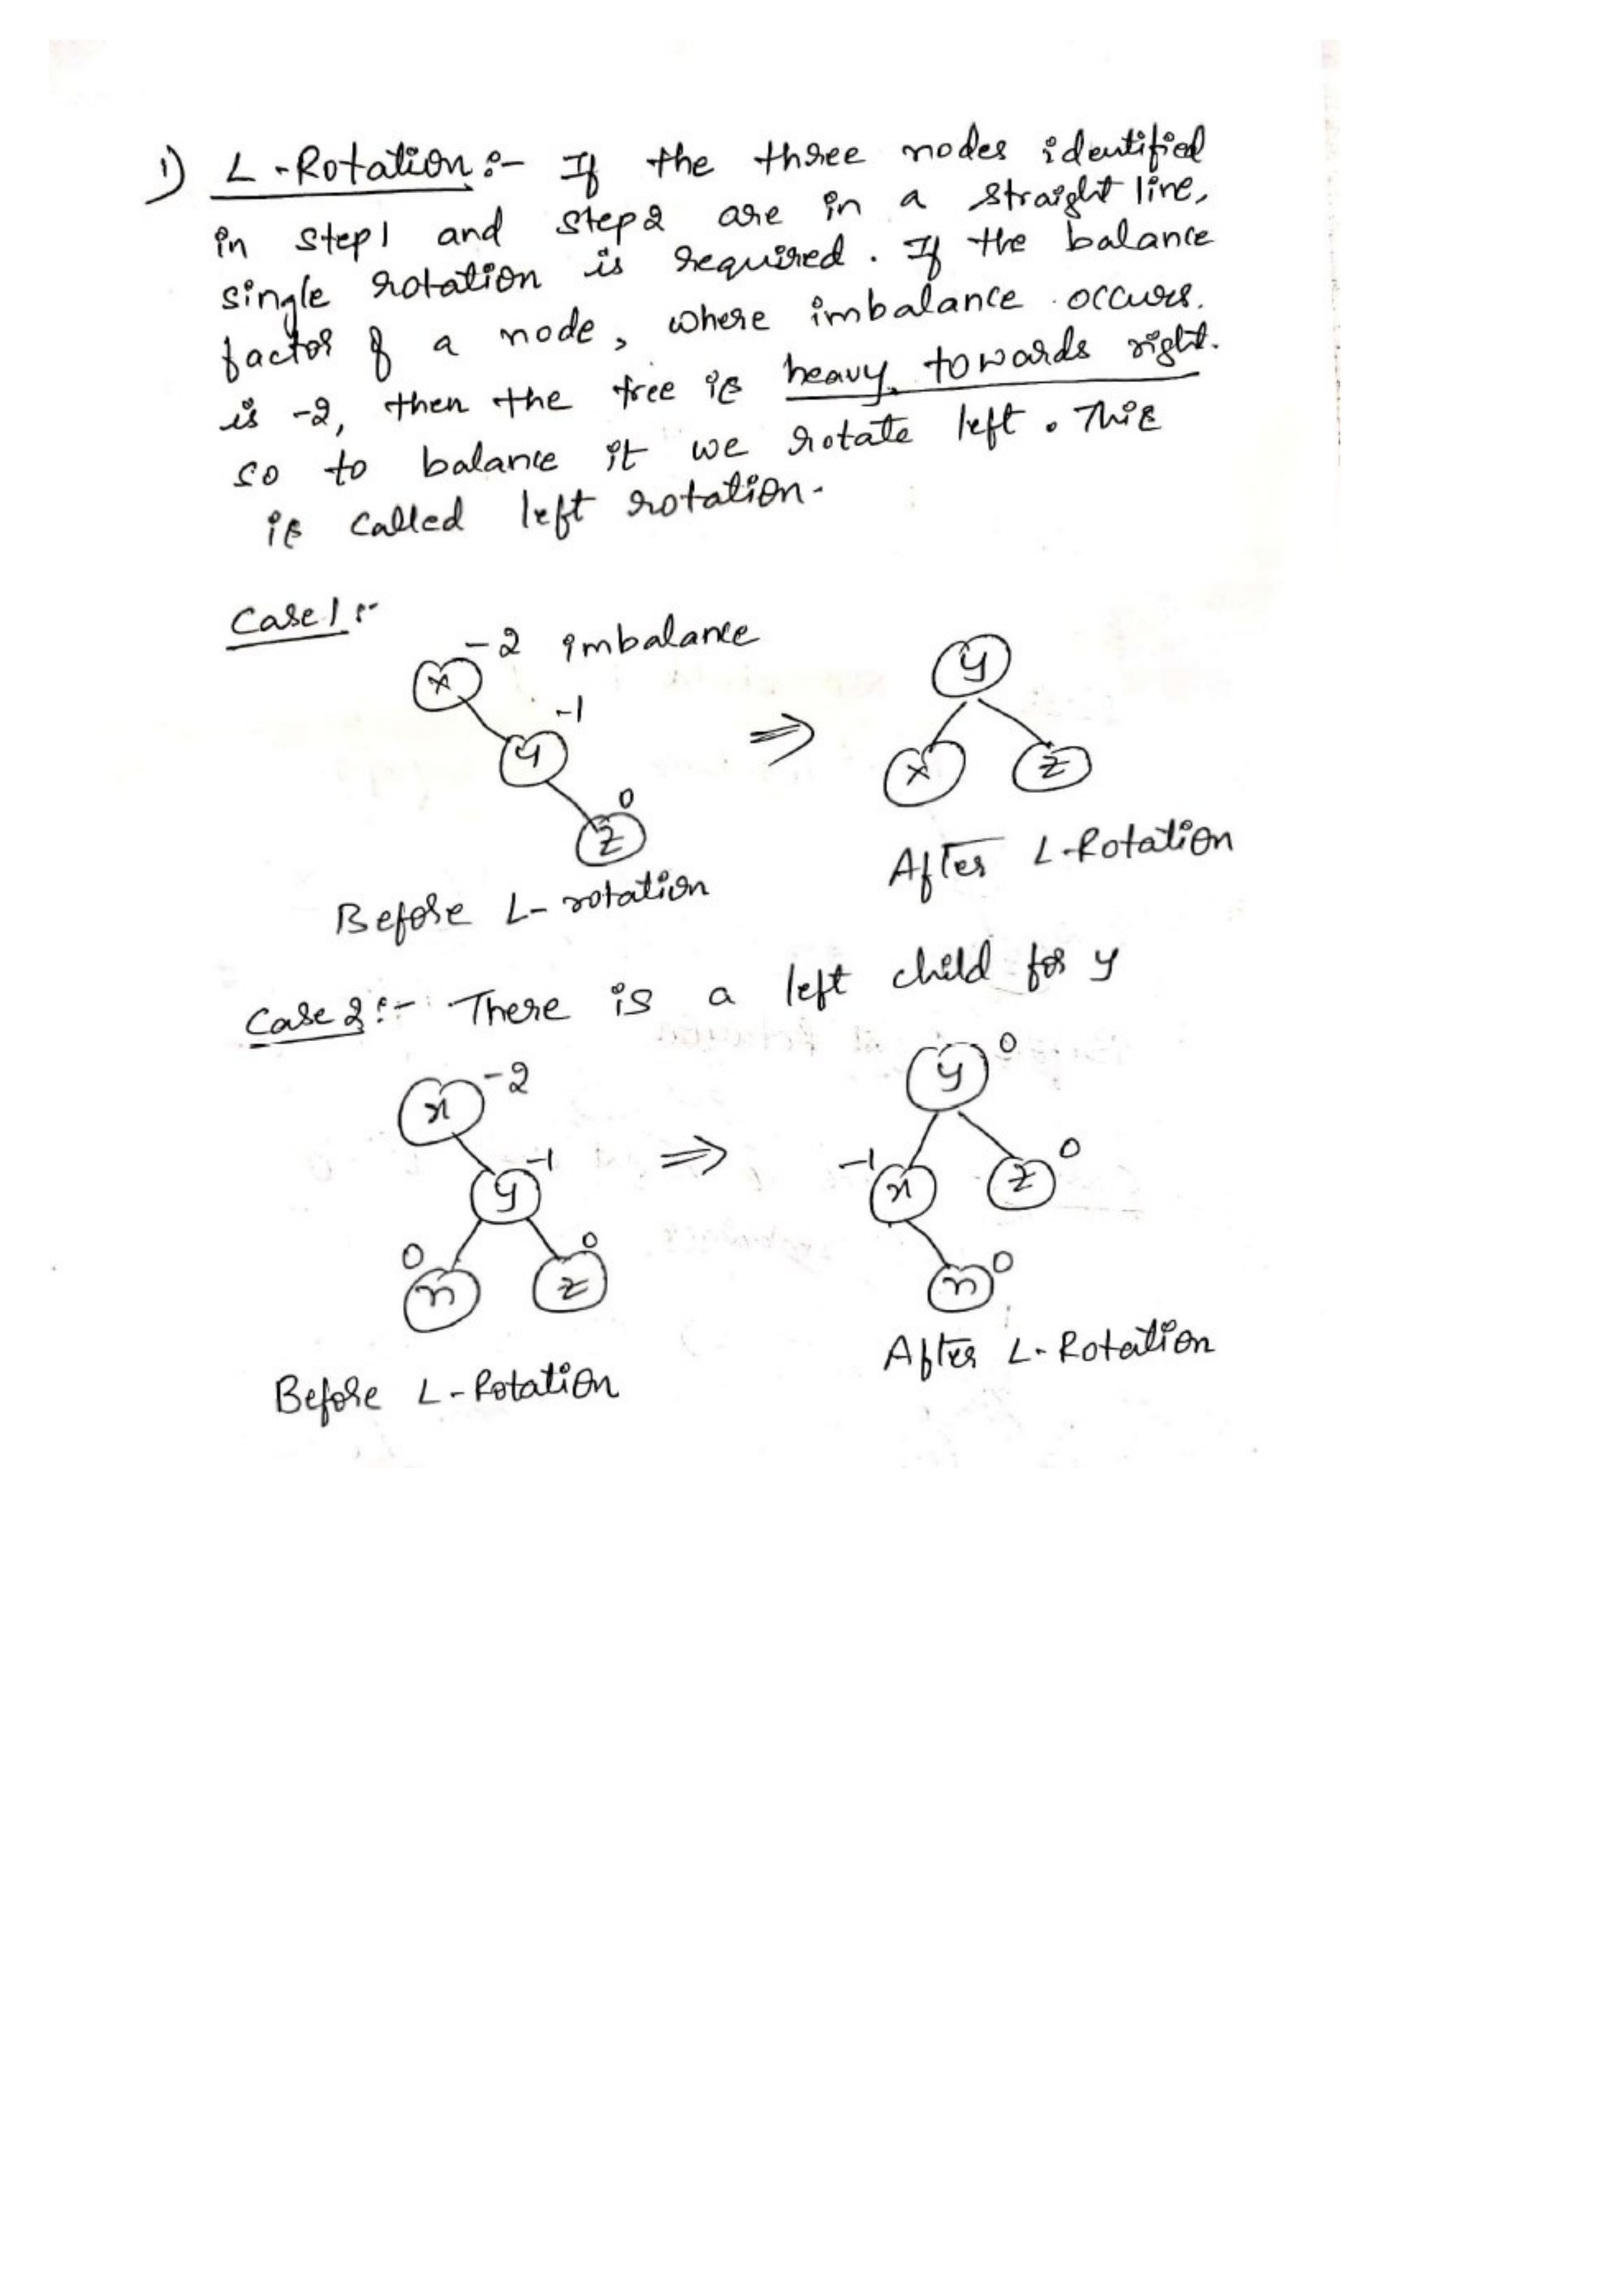 1) L-Rotation:- If the three nodes identified
in step1 and step2 are in a straight line,
single rotation is required. If the balance
factor of a node, where imbalance occurs.
is -2, then the tree is heavy towards right.
so to balance it we rotate left. This
is called left rotation.
Case1:-
-2 imbalance
x
-1
y
0
z
⇒
y
x z
Before L-rotation
After L-Rotation
Case2:- There is a left child for y
x -2
y -1
0 n
z 0
⇒
y 0
-1 x
z 0
n 0
Before L-Rotation
After L-Rotation